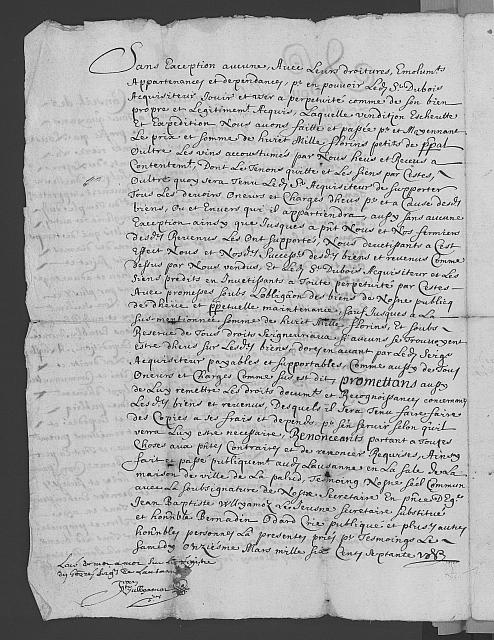 Sans Exception aucune, Avec Leurs droitures, Emolumts
Appartenances et dependances, pr en pouvoir Ledt Sr Dubois
Acquisiteur Jouir et User a perpetuité comme de son bien
propre et Legitimemt Acquis, Laquelle vendition Escheutte
et Expedition Nous avons faitte et passée pr et Moyennant
Le prix et somme de huict Mille florins petits de ppal
Oultre Les vins accoustumés par Nous heus et Receus a
Contentemt, Dont Le Tenons quitte et Les Siens par Cestes,
Oultre quoy sera Tenu Ledt Sr Acquisiteur de supporter
Tous Les devoirs Oneurs et Charges dheus pr et a Cause desdts
biens, Ou et Envers qui il appartiendra, aussy sans aucune
Exception ainsy que Jusques a pnt Nous et Nos fermiers
desdts Revenus Les Ont supportés, Nous devetissants a Cest
Effect Nous et Nosdts Successrs desdts biens et revenus Comme
dessus par Nous vendus, Et Ledt Sr Dubois Acquisiteur et Les
Siens predits en Investissants a Toute perpetuité par Cestes
Avec promesses soubs Lobligaon des biens de Nostre publiq
de dheue et ppetuelle maintenance, sauf Jusques a La
susmentionnée somme de huict Mille florins, Et soubs
Reserve de Tous droits Seigneuriaux si aucuns se Trouvoyent
estre dheus sur Lesdts biens, dores en avant par Ledt Seigr
Acquisiteur payables et supportables, Comme aussy de Tous
Oneurs et Charges Comme sus est dit, promettans aussy
de Luy remettre Les droits documts et Recognoissances concernans
Lesdts biens et revenus, Desquels il sera Tenu faire faire
des Copies a ses frais et depends pr sen servir selon quil
verra Luy estre necessaire, Renonceants partant a Toutes
Choses aux pntes Contraires et de renoncer Requises, Ainsy
fait et passé publiquemt aud Lausanne en La sale de La
maison de ville de La palud, Tesmoing Nostre séel Commun
avec La soubsignature de Nostre Secretaire En pnce D'Egr
Jean Baptiste Wllyamoz Nostre Secretaire substitué
et honnble Bernadin Odard Crie publique et plusrs autres
honnbles personnes La presentes priés pr Tesmoings Le
Samedy Onziesme Mars mille six Cents Septante